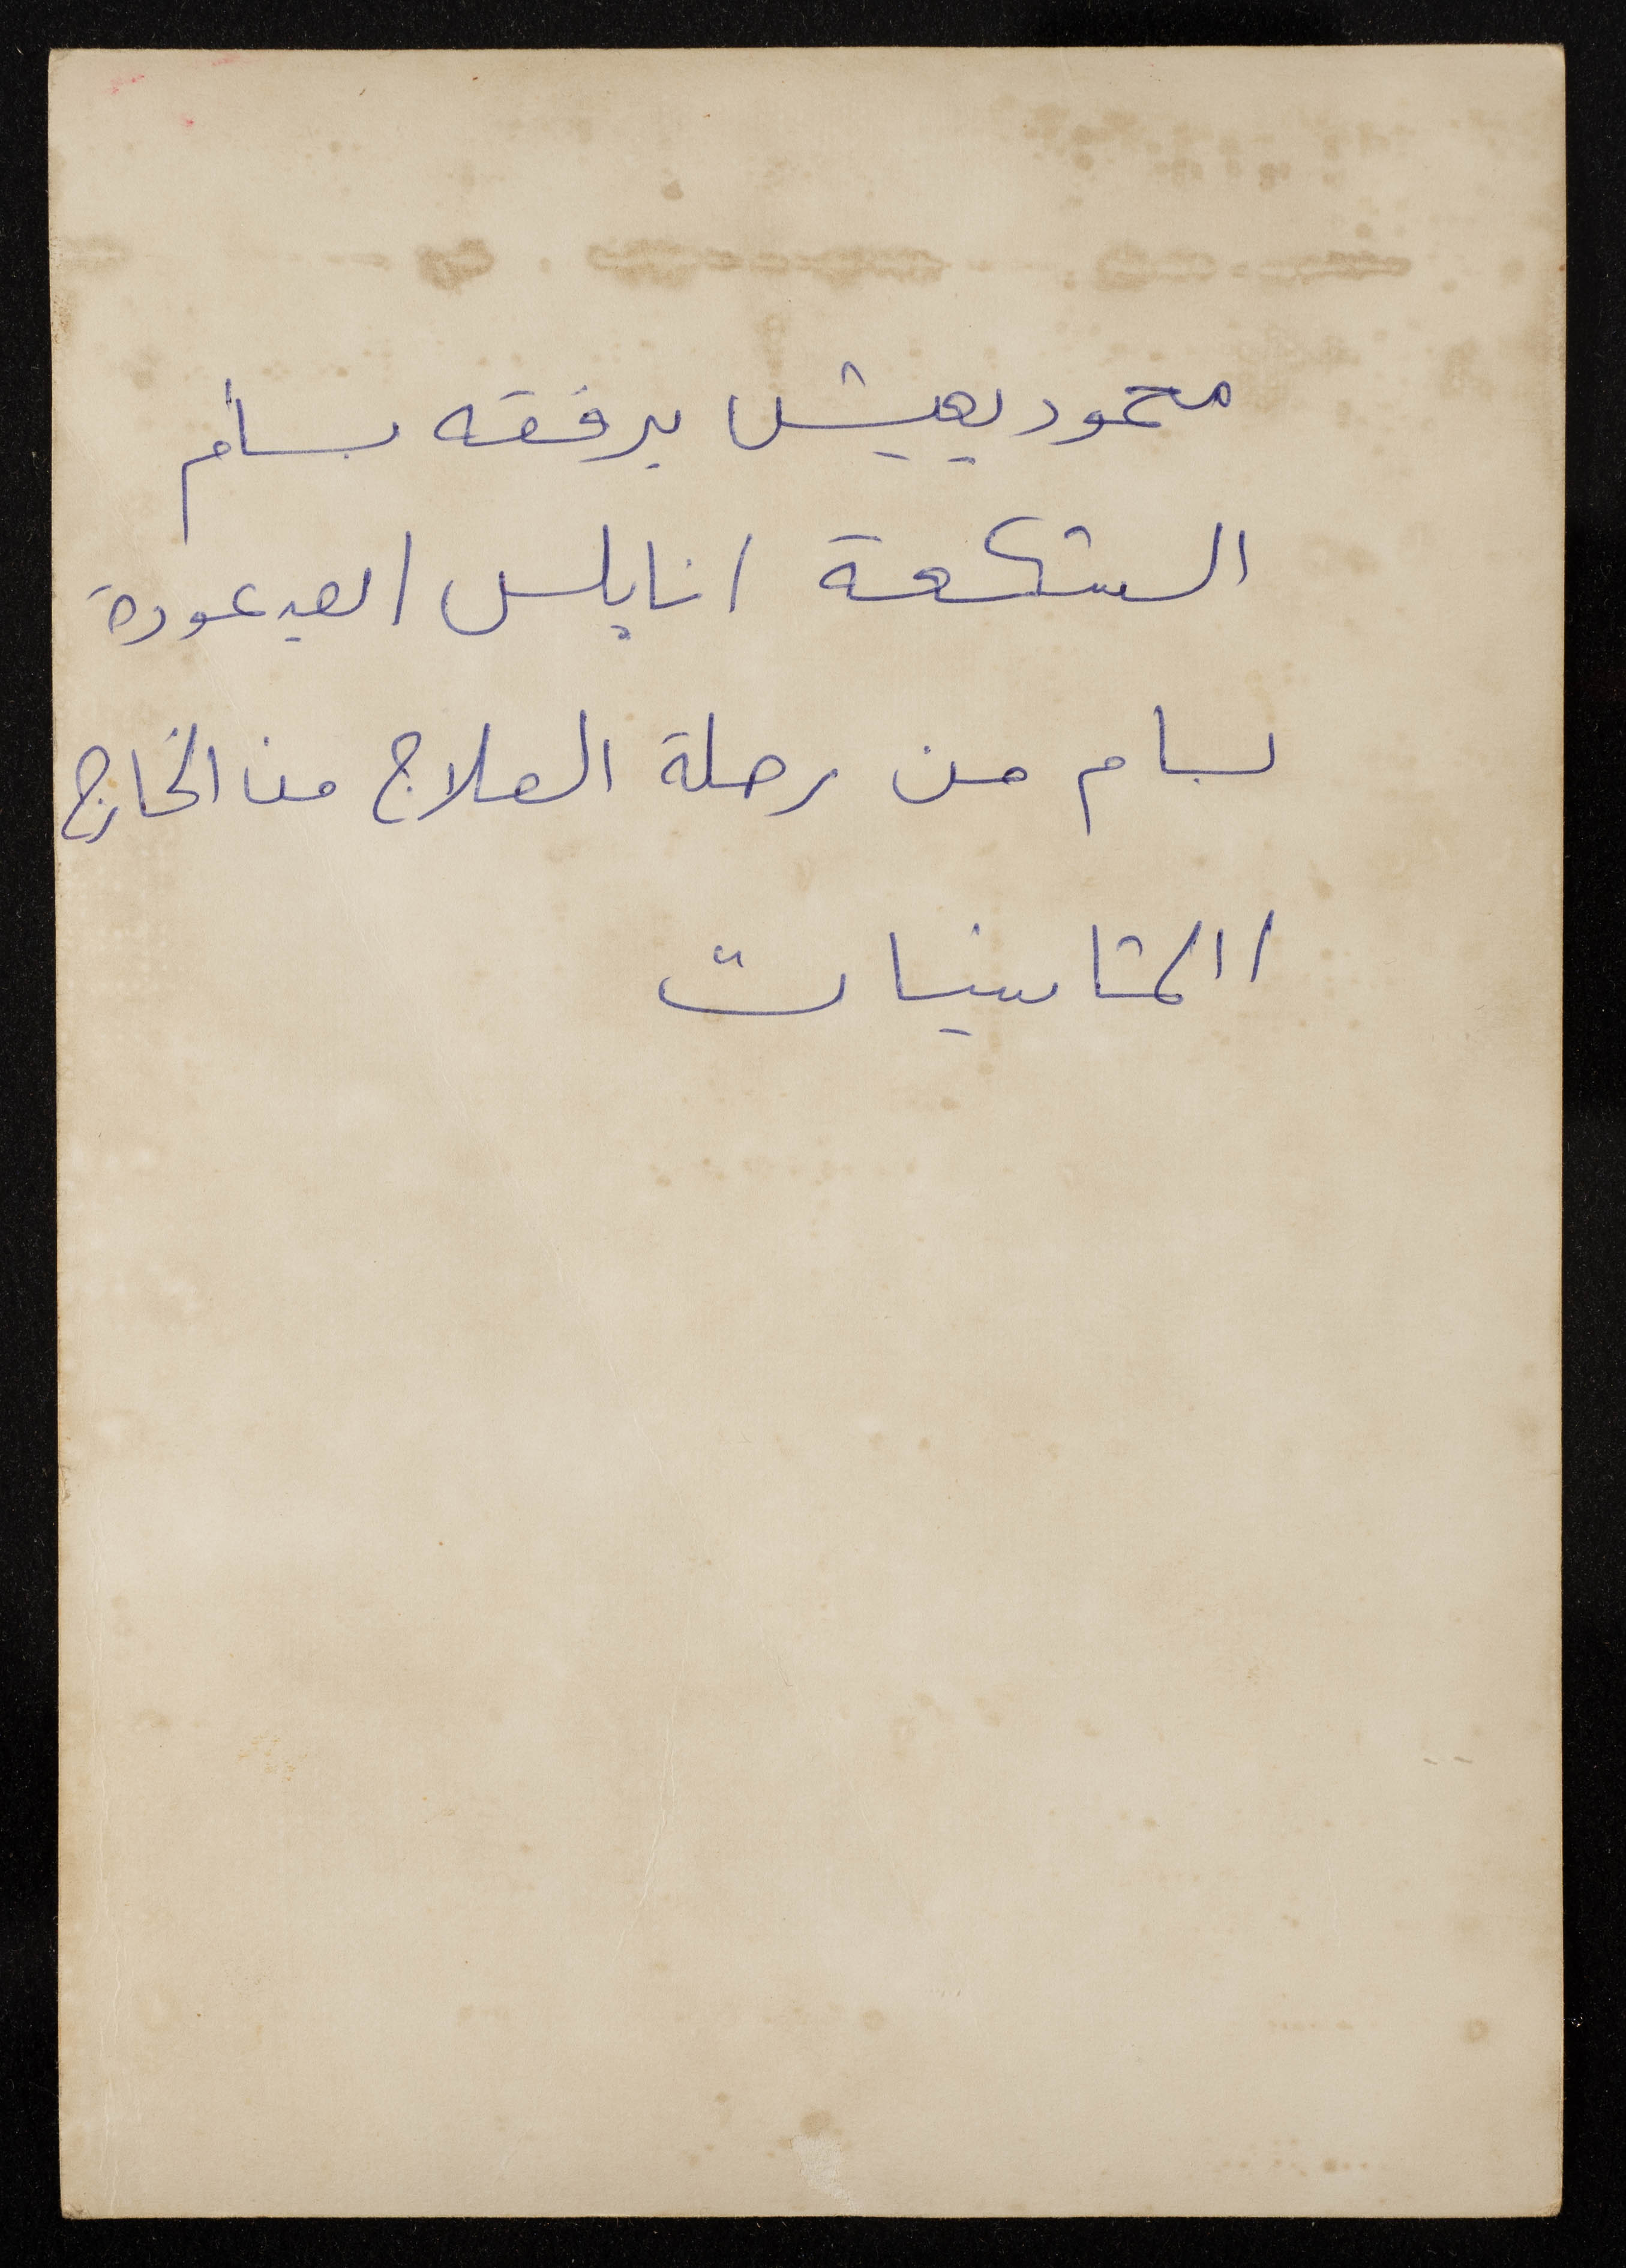 محمود يعيش برفقه بسام
الشكعة / نابلس / بعد عودة
بسام من رحلة العلاج من الخارج
/ الثمانينات